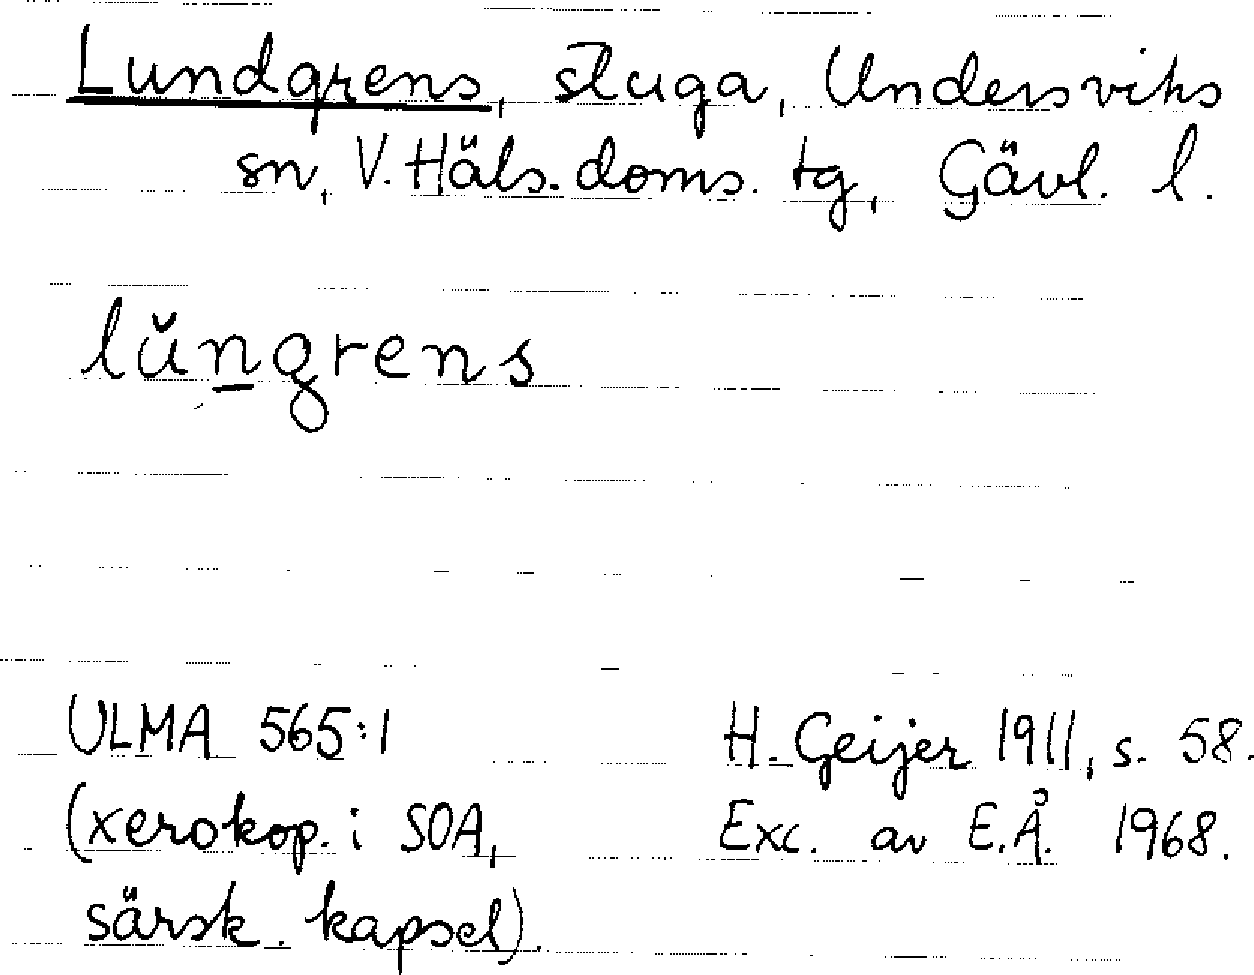 Lundgrens, stuga, Undersviks
sn, V. Häls. doms. tg, Gävl. l.
lŭn̲grens
ULMA 565:1
(xerokop. i SOA,
särsk. kapsel).
H. Geijer 1911, s. 58.
Exc. av E.Å. 1968.